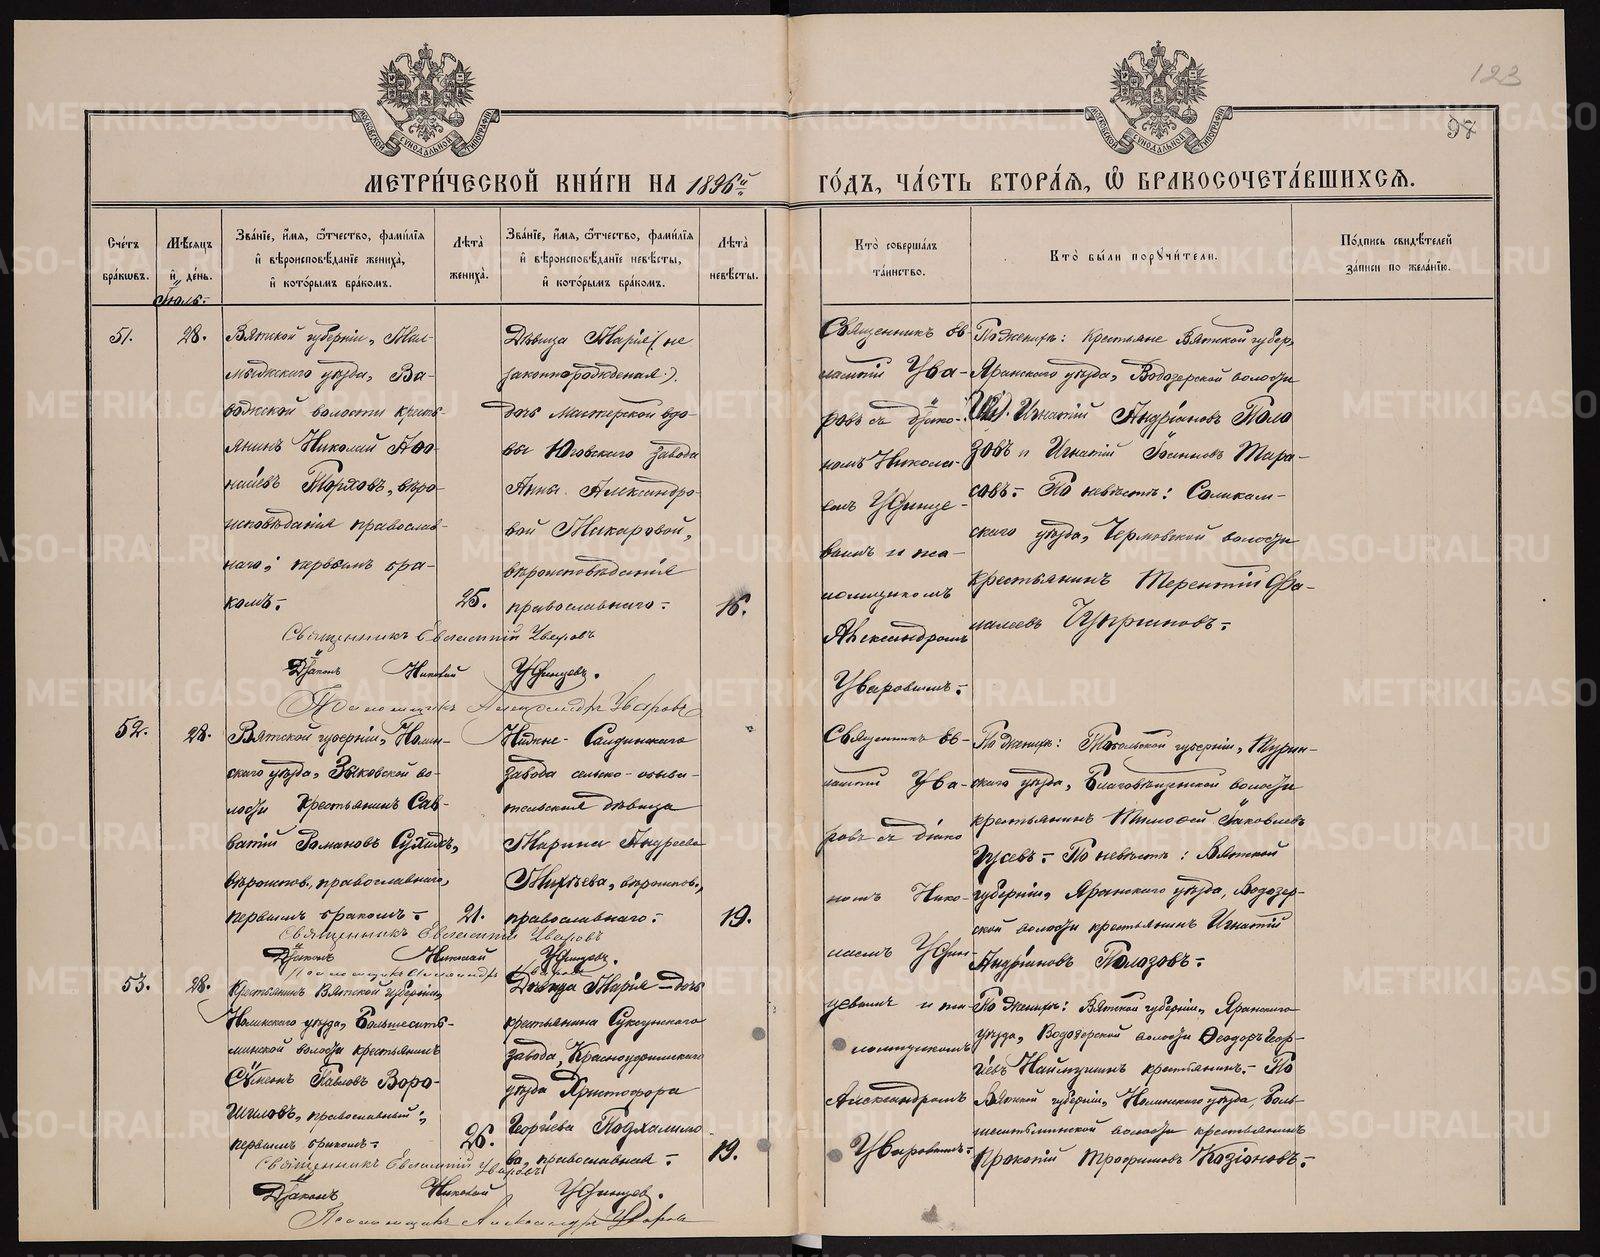 123
97
МЕТРИ́ЧЕСКОЙ КНИ́ГИ НА 1896й
ГО́ДЪ, ЧА́СТЬ ВТОРА́Я, Ѡ БРАКОСОЧЕТА́ВШИХСЯ.
Счётъ бра́ковъ.
Мѣ́сяцъ и҆ де́нь.
Зва́нїе, и҆́мя, ѻ҆́тчество, фамилїя
и҆ вѣроисповѣ́данїе жениха̀,
и҆ кото́рымъ бра́комъ.
Лѣта̀ жениха̀.
Зва́нїе, и҆́мя, ѻ҆́тчество, фамилїя
и҆ вѣроисповѣ́данїе невѣ́сты,
и҆ кото́рымъ бра́комъ.
Лѣта̀ невѣ́сты.
Кто̀ соверша́лъ
та́инство.
Кто̀ бы́ли порꙋчи́тели.
По́дпись свидѣ́телей
за́писи по жела́нїю.
Іюль.
51.
28.
Вятской губерніи, Мал-
мыжскаго уѣзда, Ва-
волости кресть-
янинъ Николай
Торховъ, вѣро-
исповѣданія православ-
наго; первымъ бра-
комъ.
25.
Дѣвица Марія (не
законнорожденая).
дочь мастерской вдо-
вы Юговскаго завода
Анны Александро-
вой Макаровой,
вѣроисповѣданія
православнаго.
16.
Священникъ Ев-
лампій Ува-
ровъ съ діако-
номъ Никола-
емъ Уфинце-
вымъ и пса-
ломщикомъ
Александромъ
Уваровымъ.
По женихѣ: Крестьяне Вятской губер.
Яранскаго уѣзда, Водозерской волости
Игнатій Андріановъ Поло
зовъ и Игнатій Іоанновъ Тара-
совъ. По невѣстѣ: Соликам-
скаго уѣзда, Чермозской волости
крестьянинъ Терентій
Цыриновъ.
Священникъ Евлампій Уваровъ
Діаконъ Николай Уфинцевъ.
Псаломщикъ Александръ Уваровъ
52.
28.
Вятской губерніи, Нолин-
скаго уѣзда, Зыковской во-
лости крестьянинъ Сав-
ватій Романовъ Сухихъ,
вѣроиспов. православнаго,
первымъ бракомъ.
21.
Нижне-Салдинскаго
завода сельско-обыва-
тельская дѣвица
Марина Андреева
Михѣева, вѣроиспов.,
православнаго.
19.
Священникъ Ев-
лампій Ува-
ровъ съ діако
номъ Нико-
лаемъ Уфин-
цевымъ и пса-
ломщикомъ
Александромъ
Уваровымъ.
По женихѣ: Тобольской губерніи, Турин-
скаго уѣзда, Благовѣщенской волости
крестьянинъ Тимофей Іаковлевъ
Гусевъ. По невѣстѣ: Вятской
губерніи, Яранскаго уѣзда, Водозер-
ской волости крестьянинъ Игнатій
Андріановъ Полозовъ.
Священникъ Евлампій Уваровъ
Діаконъ Николай Уфинцевъ.
Псаломщикъ Александръ Уваровъ
53.
28.
Крестьянинъ Вятской губерніи,
Нолинскаго уѣзда, Больше
волости крестьянинъ
Сѵмеонъ Павловъ Воро-
шиловъ, православный;
первымъ бракомъ.
26.
Дѣвица Марія - дочь
крестьянина Суксунскаго
завода, Красноуфимскаго
уѣзда Христофора
Георгіева Подхалимо
ва, православная.
19.
По женихѣ: Вятской губерніи, Яранскаго
уѣзда, Водозерской волости Ѳеодоръ Геор-
гіевъ Наймушинъ крестьянинъ. По
Вятской губерніи, Нолинскаго уѣзда, Боль-
волости крестьянинъ
Прокопій Трофимовъ
Священникъ Евлампій Уваровъ
Діаконъ Николай Уфинцевъ.
Псаломщикъ Александръ Уваровъ
METRIKI.GASO-URAL.RU